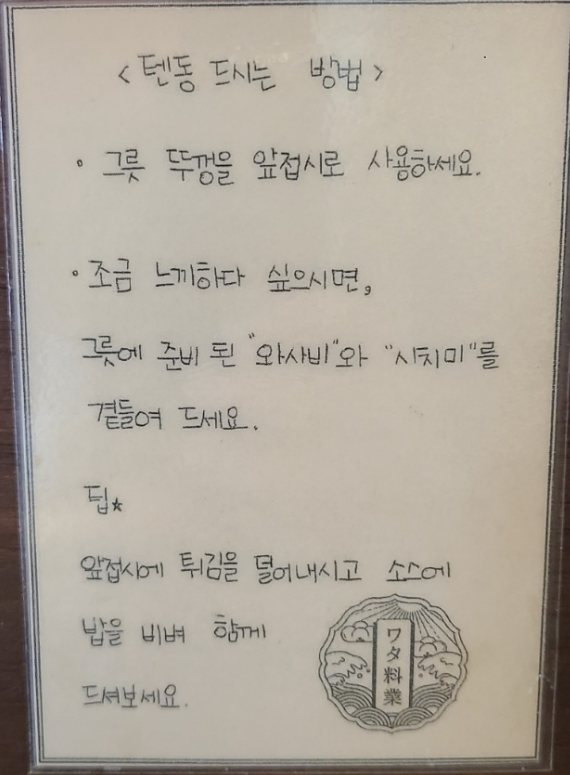 < 텐동 드시는 방법 >
• 그릇 뚜껑을 앞접시로 사용하세요.
• 조금 느끼하다 싶으시면,
그릇에 준비 된 "와사비"와 "시치미"를
곁들여 드세요.
팁★
앞접시에 튀김을 덜어내시고 소스에
밥을 비벼 함께
드셔보세요.
ワタ料業